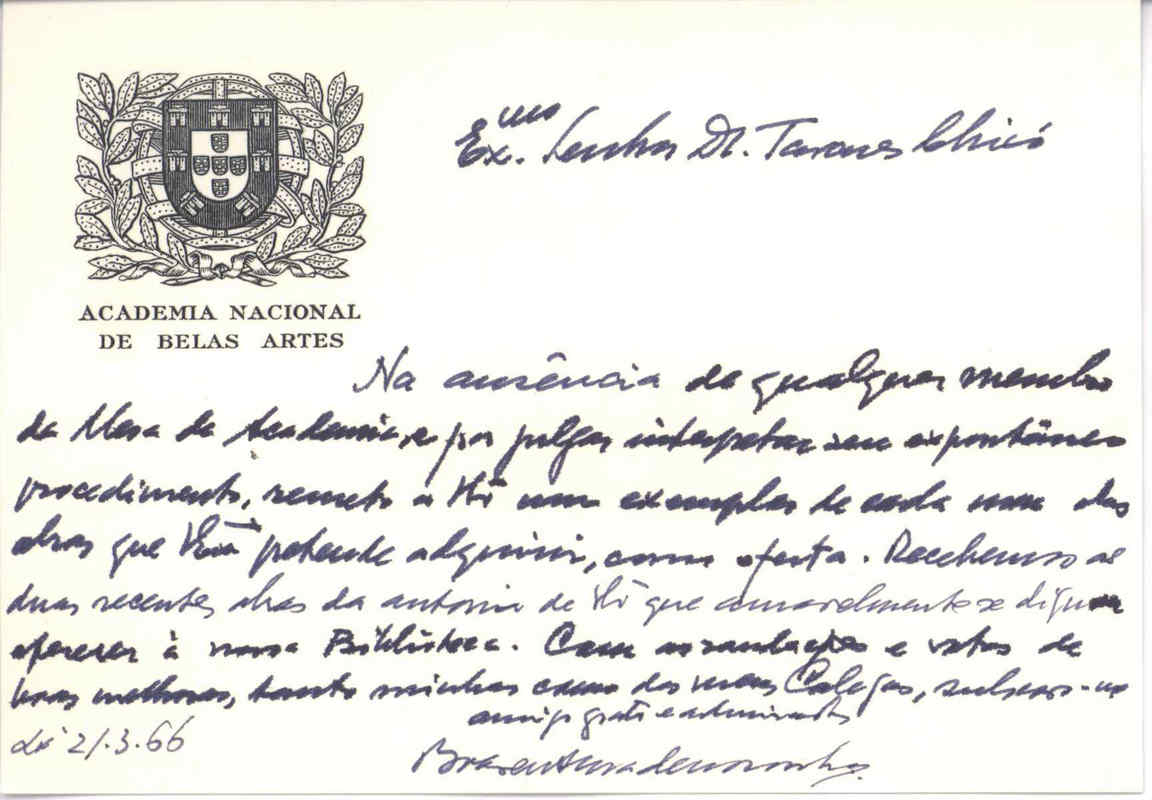 Ex.mo Senhor Dr. Tavares Chicó
ACADEMIA NACIONAL
DE BELAS ARTES
Na ausência de qualquer membro
da Mesa da Academia, e por julgar interpretar seu espontâneo
procedimento, remeto a V. um exemplar de cada uma das
obras que V. Exª pretende adquirir, como oferta. Recebemos as
duas recentes obras da autoria de V. que amavelmente se dignou
oferecer à nossa Biblioteca. Com as saudações e votos de
boas melhoras, tanto minhas como dos meus Colegas, subscrevo-me
amigo grato e admirador
Lx 21.3.66